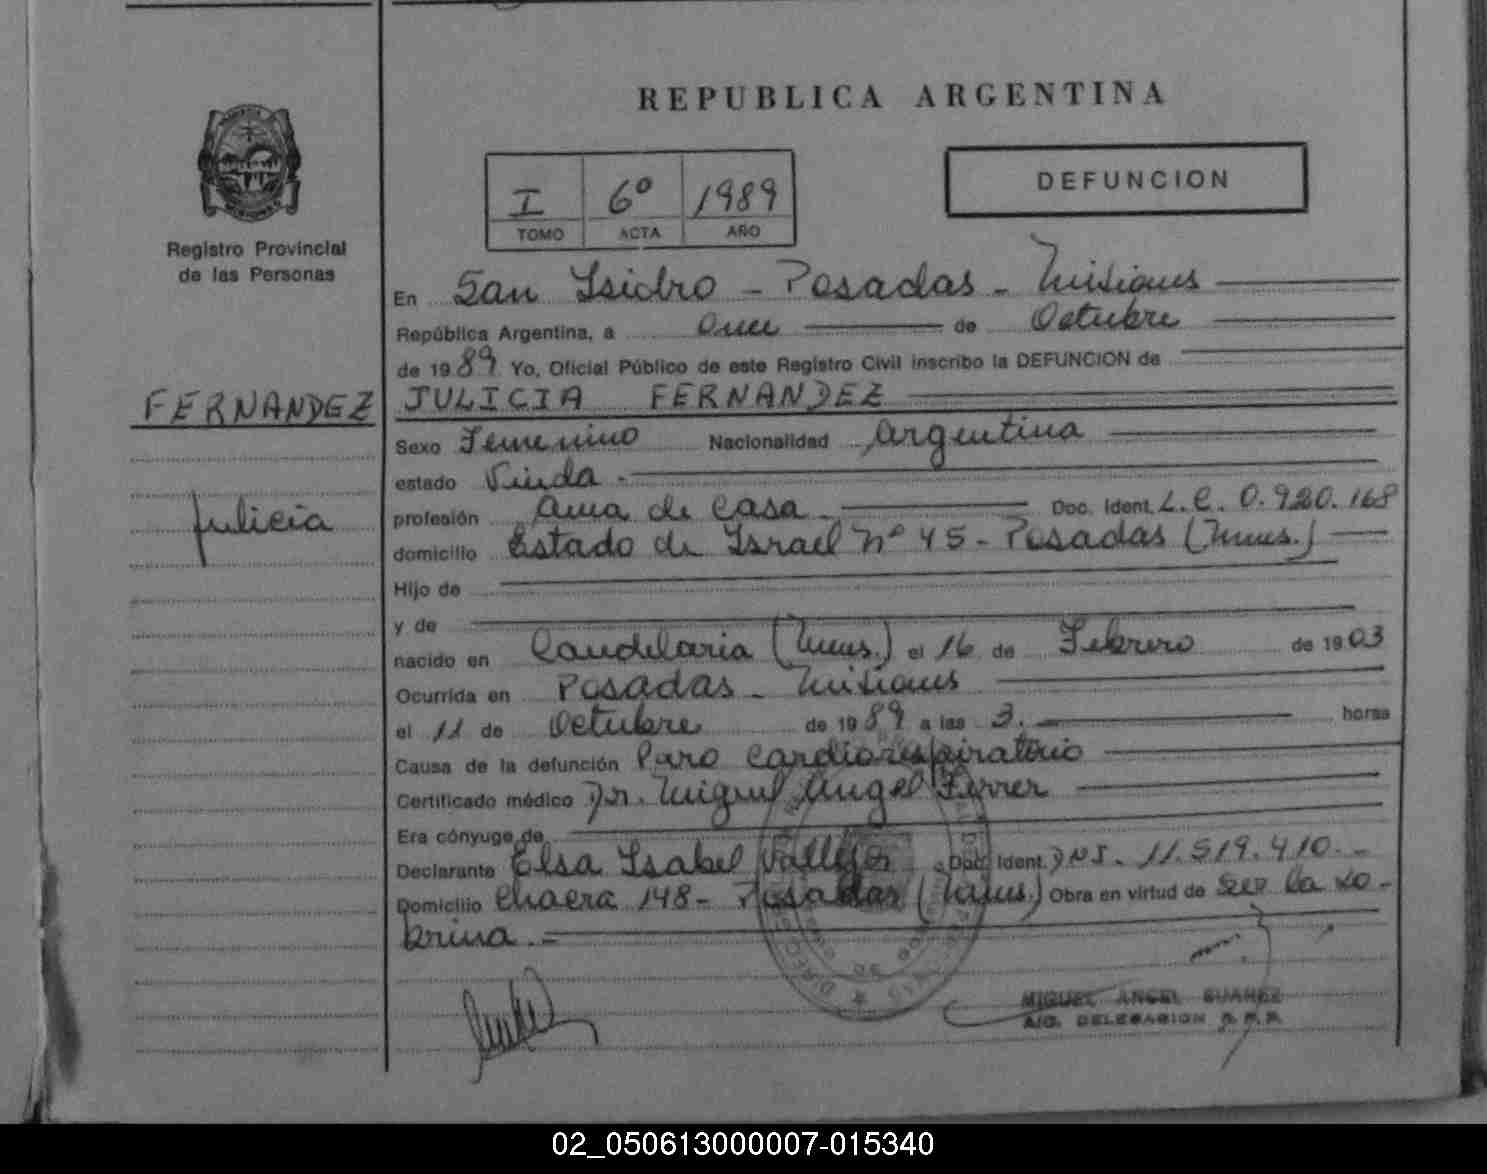 REPUBLICA ARGENTINA
I 6º 1989
TOMO ACTA AÑO
DEFUNCION
Registro Provincial
de las Personas
En San Isidro - Posadas - Misiones
República Argentina, a Once de Octubre
de 1989 Yo, Oficial Público de este Registro Civil inscribo la DEFUNCION de
FERNANDEZ
JULICIA FERNANDEZ
Sexo Femenino Nacionalidad Argentina
estado Viuda -
Julicia
profesión Ama de Casa - Doc. Ident. L.C. 0.920.168
domicilio Estado de Israel Nº 45 - Posadas (Mnes.)
Hijo de
y de
nacido en Candelaria (Mnes.) el 16 de Febrero de 1903
Ocurrida en Posadas - Misiones
el 11 de Octubre de 1989 a las 3. horas
Causa de la defunción Paro Cardiorespiratorio
Certificado médico Dr. Miguel Angel Ferrer
Era cónyuge de
Declarante Elsa Isabel Vallejos Doc. Ident. DNI. 11.519.410. -
Domicilio Chacra 148 - Posadas (Mnes.) Obra en virtud de Ser la so-
brina. -
MIGUEL ANGEL SUAREZ
A/C. DELEGACION R.P.P.
02_050613000007-015340